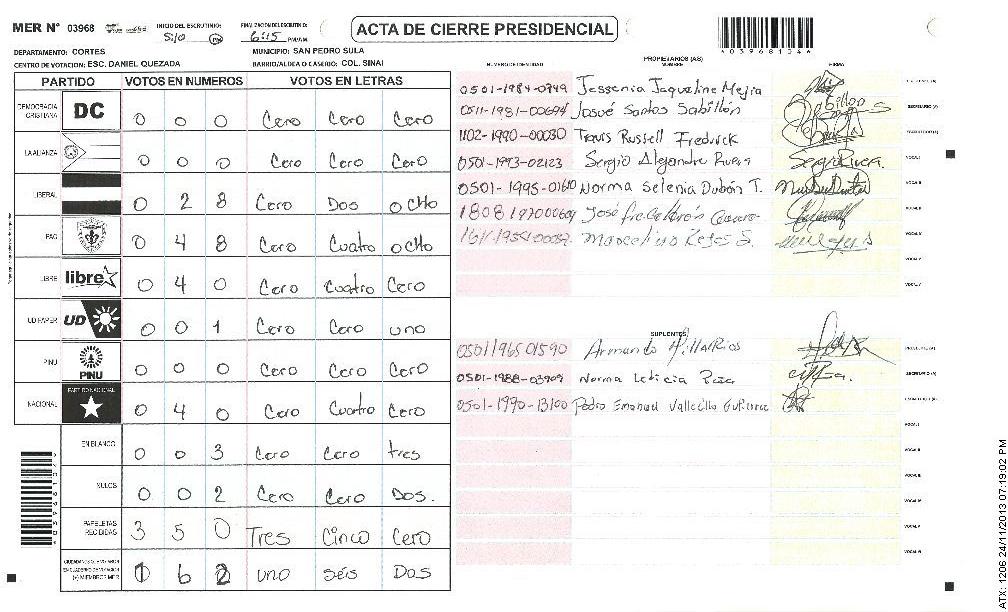 MER N° 03968
INICIO DEL ESCRUTINIO:
5:10 PM
FINALIZACION ESCRUTINIO:
6:15 PM/AM
ACTA DE CIERRE PRESIDENCIAL
DEPARTAMENTO: CORTES
MUNICIPIO: SAN PEDRO SULA
CENTRO DE VOTACION: ESC. DANIEL QUEZADA
BARRIO/ALDEA O CASERIO: COL. SINAI
PARTIDO VOTOS EN NUMEROS VOTOS EN LETRAS
DEMOCRACIA CRISTIANA DC 0 0 0 Cero Cero Cero
LA ALIANZA 0 0 0 Cero Cero Cero
LIBERAL 0 2 8 Cero Dos ocho
PAC 0 4 8 Cero Cuatro ocho
LIBRE libre 0 4 0 Cero Cuatro Cero
UD FAPER UD 0 0 1 Cero Cero uno
PINU PINU 0 0 0 Cero Cero Cero
NACIONAL PARTIDO NACIONAL 0 4 0 Cero Cuatro Cero
EN BLANCO 0 0 3 Cero Cero tres
NULOS 0 0 2 Cero Cero Dos.
PAPELETAS RECIBIDAS 3 5 0 Tres Cinco Cero
1 6 2 uno séis Dos
PROPIETARIOS (AS)
NUMERO DE IDENTIDAD NOMBRE FIRMA
0501-1984-0749 Jessenia Jaqueline Mejia
0511-1981-00694 Josué Santos Sabillón
1102-1990-00030 Travis Russell Fredrick
0501-1993-02123 Sergio Alejandro Rivera
0501-1995-01610 Norma Selenia Dubón T.
1808 1970 00609 José
1611-1954-00037 Marcelino Reyes S.
SUPLENTES
0501 1965 01590 Armando Villa Rios
0501-1988-03909 Norma Leticia
0501-1990-13100 Pedro Emanuel Vallecillo Gutierrez
4039681344
ATX: 1206 24/11/2013 07:19:02 PM